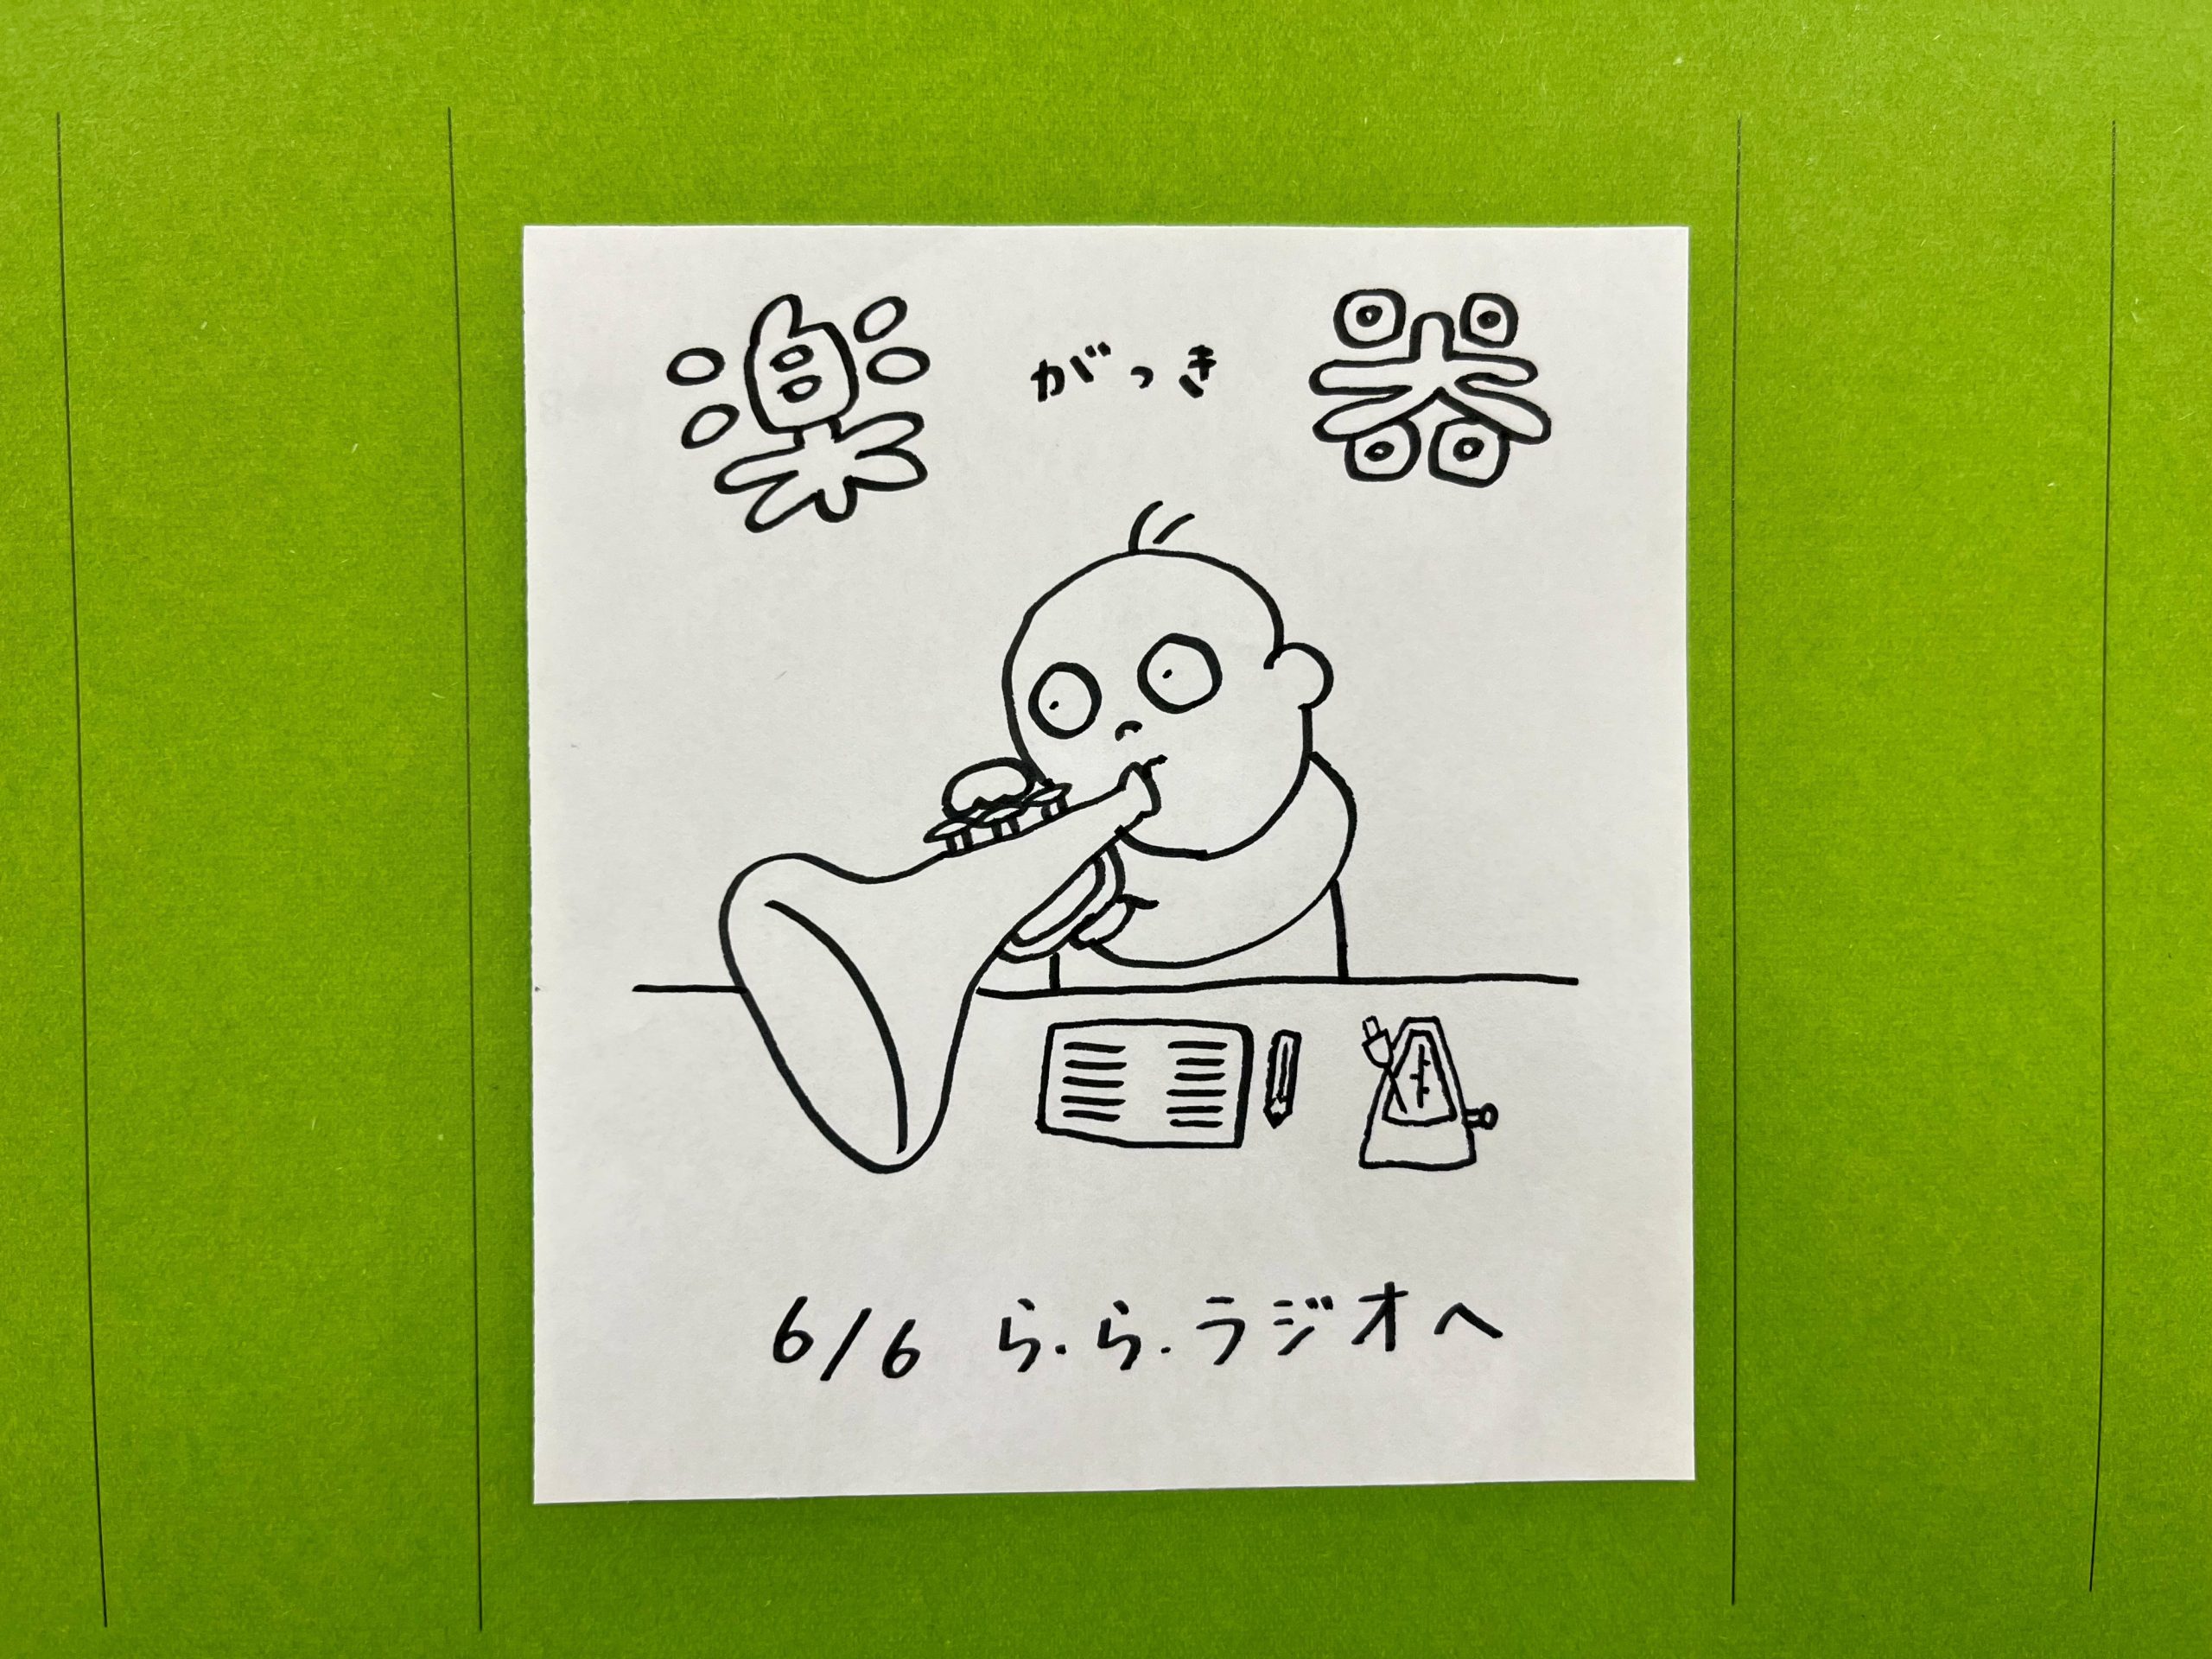 楽 がっき 器
6/6 ら.ら.ラジオへ